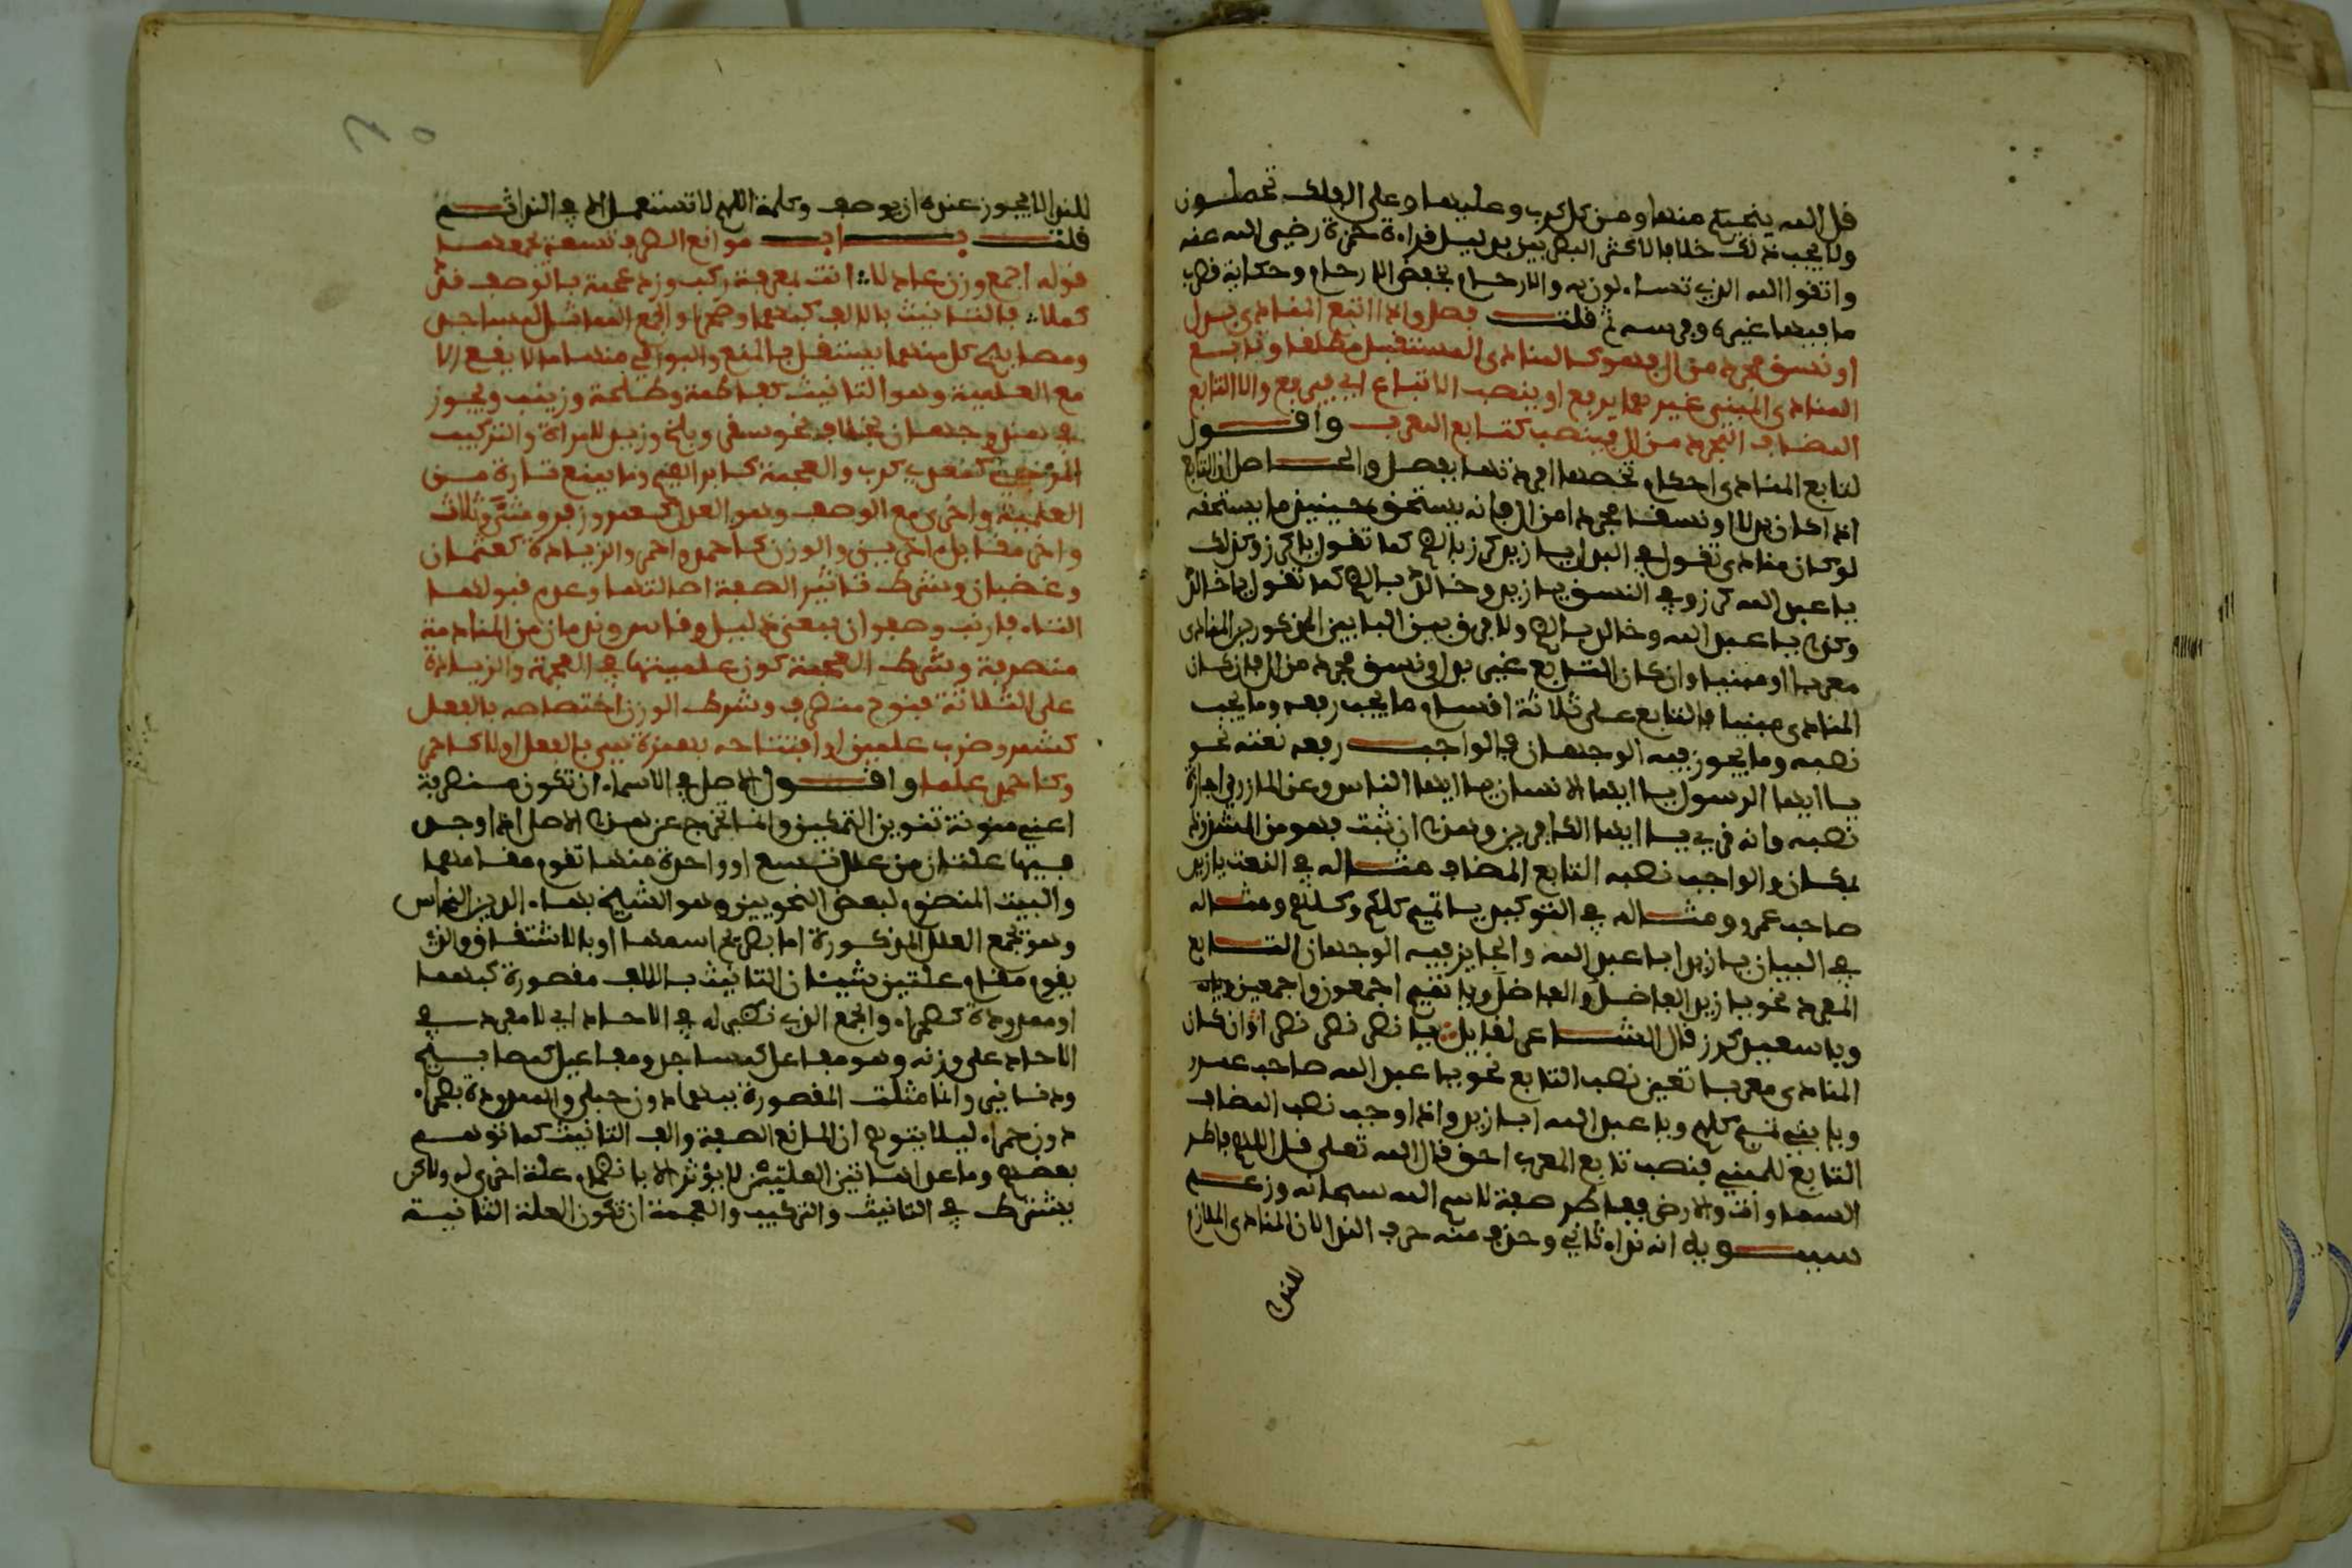 قل الله ينجيكم منها ومن كل كرب وعليها وعلى الفلك تحملون
ولا يجب ذلك خلافا لاكثر البصريين بدليل قراءة حمزة رضي الله عنه
واتقوا الله الذي تساءلون به والارحام بخفض الارحام وحكاية قطرب
ما فيها غيره وفرسه ثم قلت فصل واذا اتبع المنادى ببدل
او نسق مجرد من ال فهو كالمنادى المستقبل مطلقا وتابع
المنادى المبني غيرهما يرفع او ينصب الا تابع اي فيرفع والا التابع
المضاف المجرد من ال فينصب كتابع المعرب واقول
لتابع المنادى احكام تخصه افردتها بفصل والحاصل ان التابع
اذا كان بدلا او نسقا مجردا من ال فانه يستحق حينئذ ما يستحقه
لو كان منادى تقول في البدل يا زيد كرز بالضم كما تقول يا كرز وكذلك
يا عبد الله كرز وفي النسق يا زيد وخالد بالضم كما تقول يا خالد
وكذا يا عبد الله وخالد بالضم ولا فرق بين البابين المذكورين المنادى
معربا او مبنيا وان كان التابع غير بدل ونسق مجرد من ال فان كان
المنادى مبنيا فالتابع على ثلاثة اقسام ما يجب رفعه وما يجب
نصبه وما يجوز فيه الوجهان فالواجب رفعه نعته نحو
يا ايها الرسول يا ايها الانسان يا ايها الناس وعن المازني اجازة
نصبه وانه قرئ يا ايها الكافرين وهذا ان ثبت فهو من الشذوذ
بمكان والواجب نصبه التابع المضاف مثاله في النعت يا زيد
صاحب عمرو ومثاله في التوكيد يا تميم كلكم وكلهم ومثاله
في البيان يا زيد ابا عبد الله والجايز فيه الوجهان التابع
المفرد نحو يا زيد الفاضل والفاضل ويا تميم اجمعون واجمعين ويا
ويا سعيد كرز قال الشاعر لقايل يا نصر نصر نصرا وان كان
المنادى معربا تعين نصب التابع نحو يا عبد الله صاحب عمرو
ويا بني تميم كلهم ويا عبد الله ابا زيد واذا وجب نصب المضاف
التابع للمبني فنصب تابع المعرب احق قال الله تعلى قل اللهم فاطر
السماوات والارض ففاطر صفة لاسم الله سبحانه وزعم
سيبويه انه نداء ثاني وحذف منه حرف الندا لان المنادى الملازم
للندا
للندا لا يجوز عنده ان يوصف وكلمة اللهم لا تستعمل الا في الندا ثم
قلت باب موانع الصرف تسعة يجمعها
قوله اجمع وزن عادلا انث بمعرفة ركب وزد عجمة فالوصف قد
كملا فالتانيث بالالف كبهمى وصحراء والجمع المماثل لمساجد
ومصابيح كل منهما يستقل بالمنع والبواقي منها ما لا يمنع الا
مع العلمية وهو التانيث كفاطمة وطلحة وزينب ويجوز
في نحو هند وجهان بخلاف نحو سقر وبلخ وزيد للمراة والتركيب
المزجي كمعدي كرب والعجمة كابراهيم وما يمنع تارة مع
العلمية واخرى مع الوصف وهو العدل كعمر وزفر ومثنى وثلاث
واخر مقابل اخرين والوزن كاحمد واحمر والزيادة كعثمان
وغضبان وشرط تاثير الصفة اصالتها وعدم قبولها
التاء فارنب وصفوان بمعنى ذليل وقاس وندمان من المنادمة
منصرفة وشرط العجمة كون علميتها في العجمة والزيادة
على الثلاثة فنوح منصرف وشرط الوزن اختصاصه بالفعل
كشمر وضرب علمين او افتتاحه بهمزة هي بالفعل اولى كاحمر
وكاحمد علما واقول الاصل في الاسماء ان تكون منصرفة
اعني منونة تنوين التمكين وانما تخرج عن هذا الاصل اذا وجد
فيها علتان من علل تسع او واحدة منها تقوم مقامهما
والبيت المنظوم لبعض النحويين وهو الشيخ بهاء الدين النحاس
وهو تجمع العلل المذكورة اما بصريح اسمها او بالاشتقاق والذي
يقوم مقام علتين شيئان التانيث بالالف مقصورة كبهمى
او ممدودة كصحراء والجمع الذي نظير له في الاحاد اي لا مفرد في
الاحاد على وزنه وهو مفاعل كمساجد ومفاعيل كمصابيح
ودنانير وانما مثلت المقصورة ببهمى دون حبلى والممدودة بصحراء
دون حمراء ليلا يتوهم ان المانع الصفة والف التانيث كما توهم
بعضهم وما عدا هاتين العلتين لا يؤثر الا بانضمام علة اخرى له ولكن
يشترط في التانيث والتركيب والعجمة ان تكون العلة الثانية